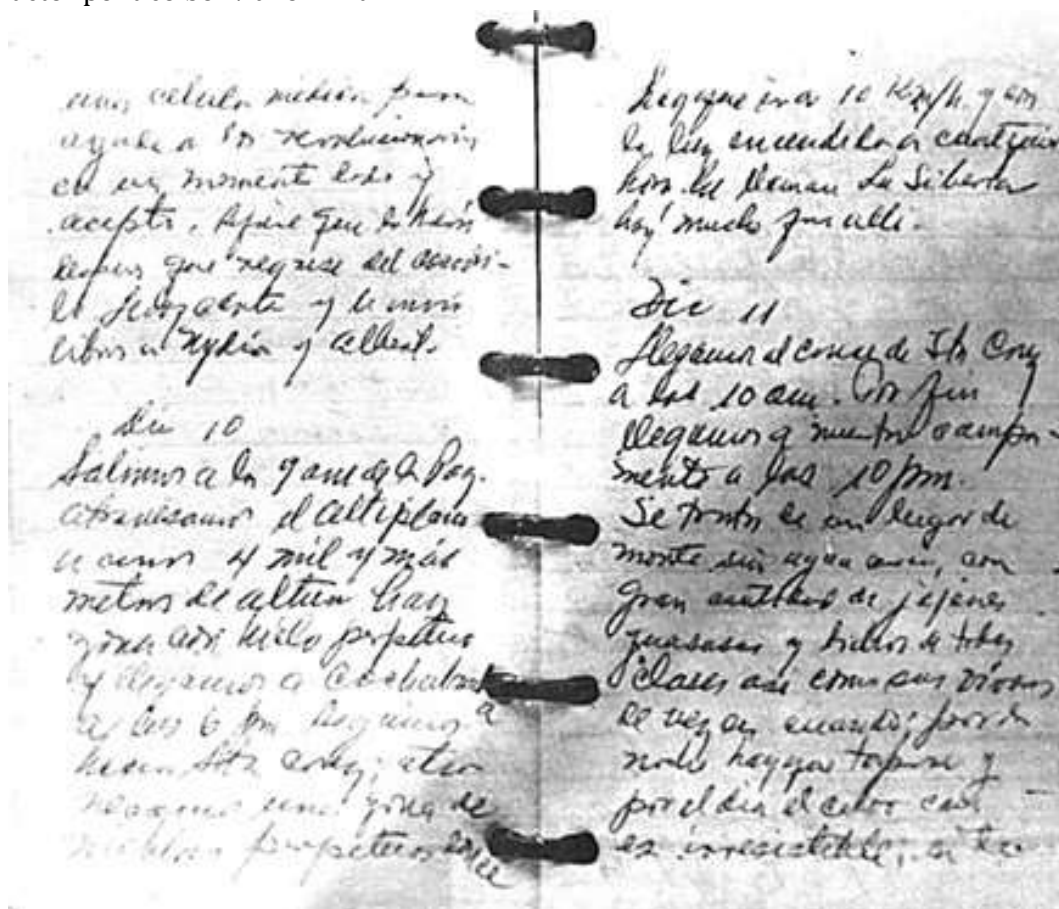 una celula médica para
ayudar a los revolucionarios
en un momento dado y
acepto.
que regrese del
libros a y Albert.
Dic 10
Salimos a las 9 am de la Paz.
atravesamos el altiplano
a unos 4 mil y más
metros de altura hay
zonas con hielo perpetuo
y llegamos a Cochabamba
a las 6 pm seguimos a
hacia Sta Cruz; atra
vesamos una zona de
nieblas perpetuas donde
hay que ir a 10 Km/h. y con
la luz encendida a cualquier
hora. La llaman La Siberia
hay mucho frio alli.
Dic 11
Llegamos al cruce de Sta Cruz
a las 10 am. Por fin
llegamos a nuestro campa-
mento a las 10 pm.
Se trata de un lugar de
monte sin agua casi, con
gran cantidad de jejenes
guasasas y bichos de todas
clases asi como
de vez en cuando; por la
noche hay que taparse y
por el dia el calor casi
es irresistible,